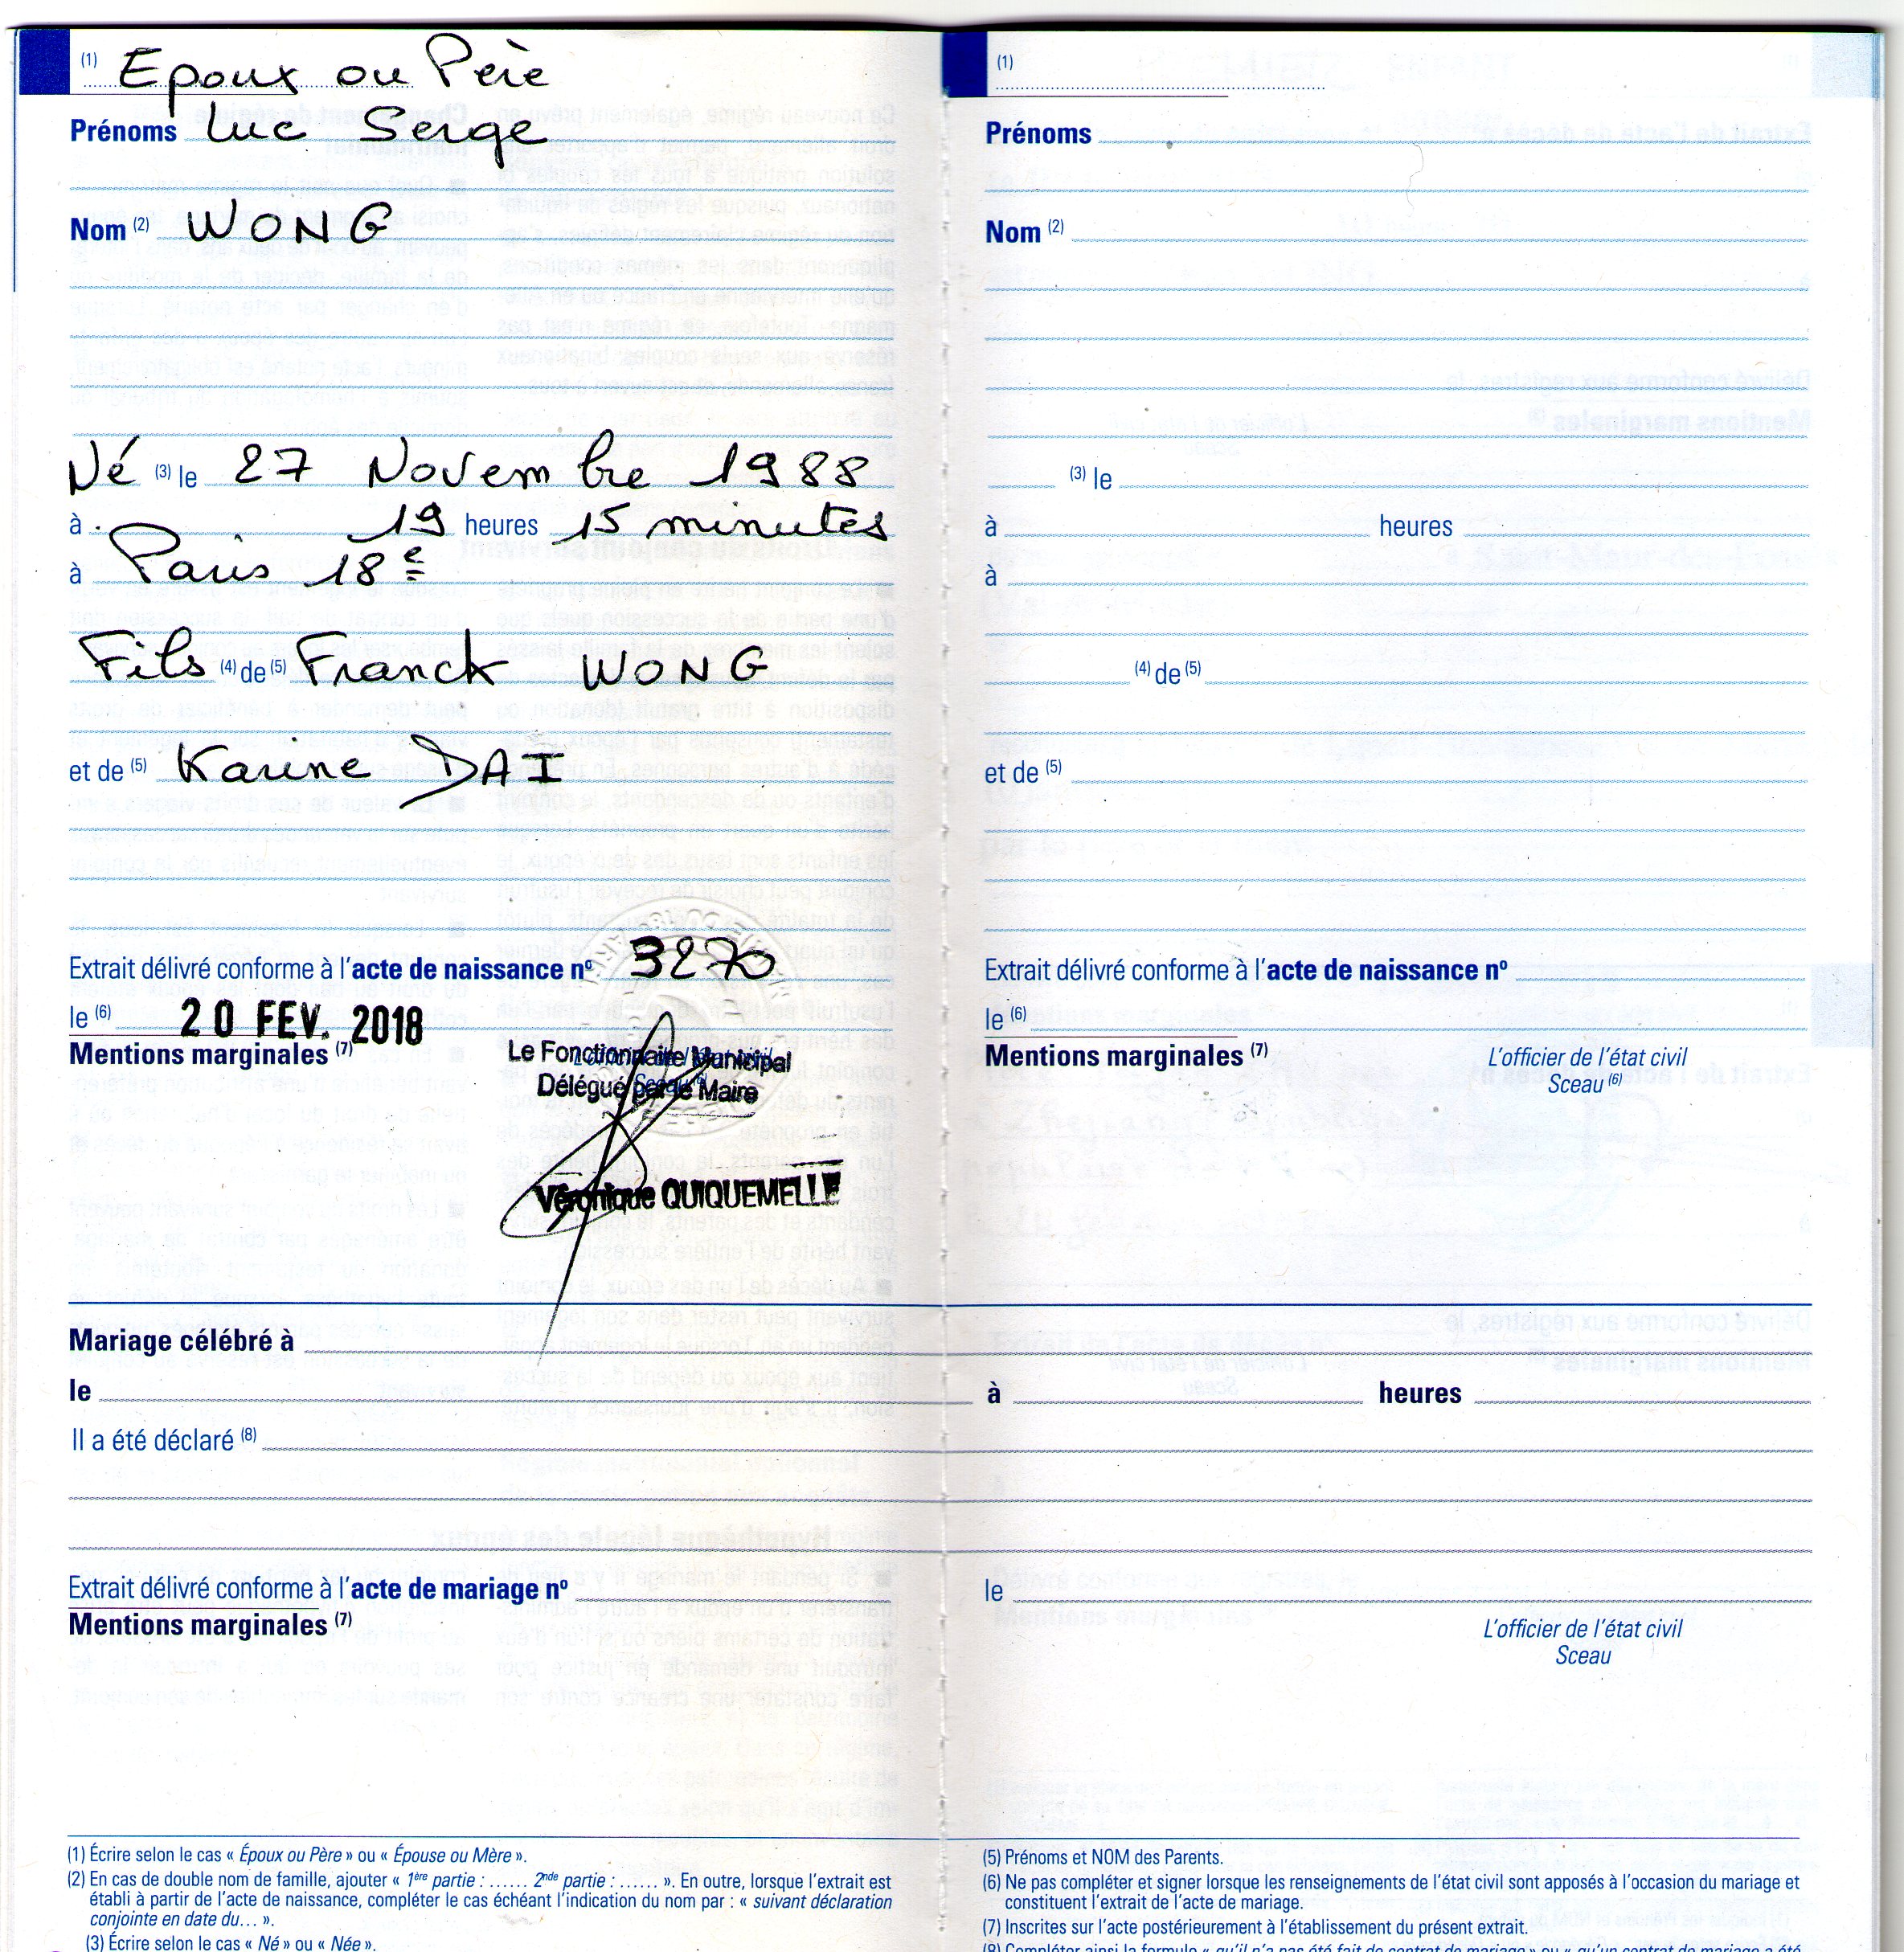 (1) Epoux ou Père
Prénoms Luc Serge
Nom (2) WONG
Né (3) le 27 Novembre 1988
à 19 heures 15 minutes
à Paris 18e
Fils (4) de (5) Franck WONG
et de (5) Karine DAI
Extrait délivré conforme à l'acte de naissance nº 3270
le (6) 20 FEV. 2018
Mentions marginales (7)
Le Fonctionnaire Municipal
Délégué par le Maire
Véronique QUIQUEMELLE
(1)
Prénoms
Nom (2)
(3) le
à heures
à
(4) de (5)
et de (5)
Extrait délivré conforme à l'acte de naissance nº
le (6)
Mentions marginales (7)
L'officier de l'état civil
Sceau (6)
Mariage célébré à
le à heures
Il a été déclaré (8)
Extrait délivré conforme à l'acte de mariage nº le
Mentions marginales (7)
L'officier de l'état civil
Sceau
(1) Écrire selon le cas « Époux ou Père » ou « Épouse ou Mère ».
(2) En cas de double nom de famille, ajouter « 1ère partie : ...... 2nde partie : ...... ». En outre, lorsque l'extrait est
établi à partir de l'acte de naissance, compléter le cas échéant l'indication du nom par : « suivant déclaration
conjointe en date du... ».
(3) Écrire selon le cas « Né » ou « Née ».
(5) Prénoms et NOM des Parents.
(6) Ne pas compléter et signer lorsque les renseignements de l'état civil sont apposés à l'occasion du mariage et
constituent l'extrait de l'acte de mariage.
(7) Inscrites sur l'acte postérieurement à l'établissement du présent extrait.
(8) Compléter ainsi la formule « qu'il n'a pas été fait de contrat de mariage » ou « qu'un contrat de mariage a été